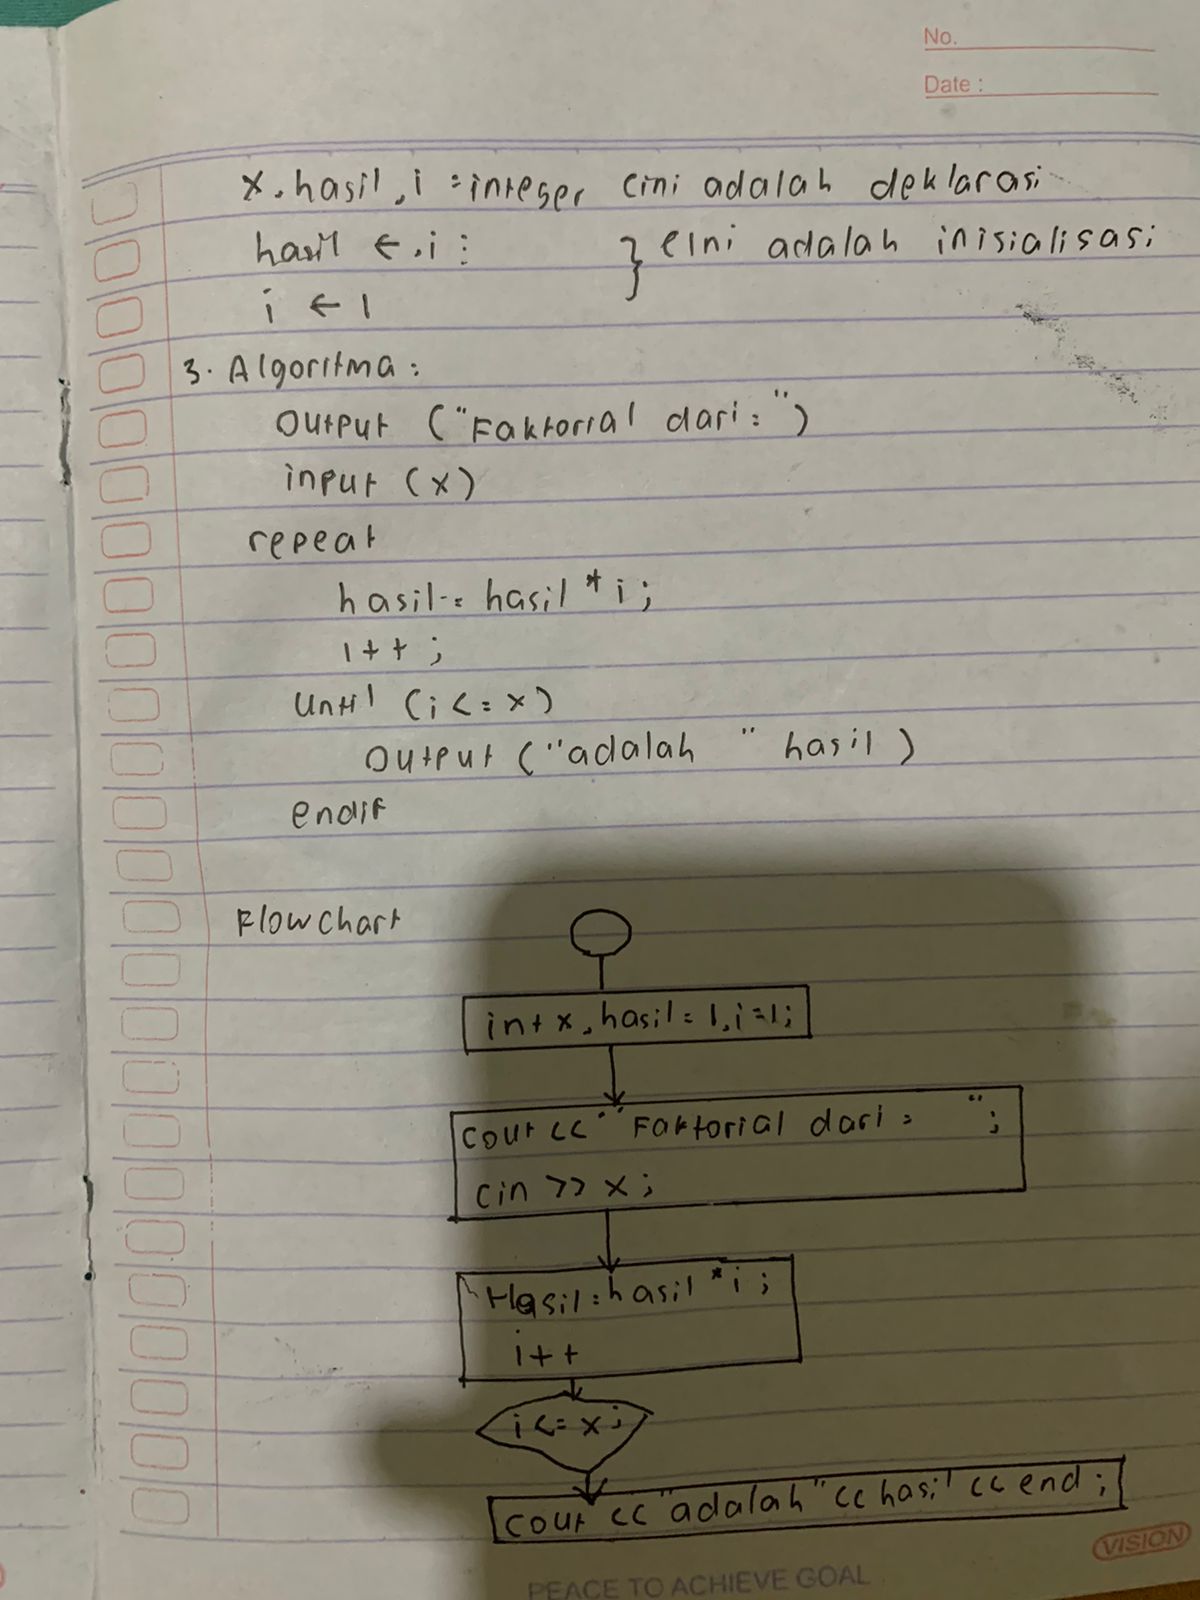 No.
Date :
x, hasil, i = integer (ini adalah deklarasi
hasil ← i ;
} (Ini adalah inisialisasi
i ← 1
3. Algoritma :
Output ("Faktorial dari = ")
input (x)
repeat
hasil = hasil * i ;
i++ ;
Until (i <= x)
Output ("adalah " hasil )
endif
Flowchart
int x, hasil = 1, i = 1;
cout << " Faktorial dari = ";
cin >> x ;
Hasil = hasil * i ;
i++
i <= x ;
cout << "adalah" << hasil << end ;
VISION
PEACE TO ACHIEVE GOAL